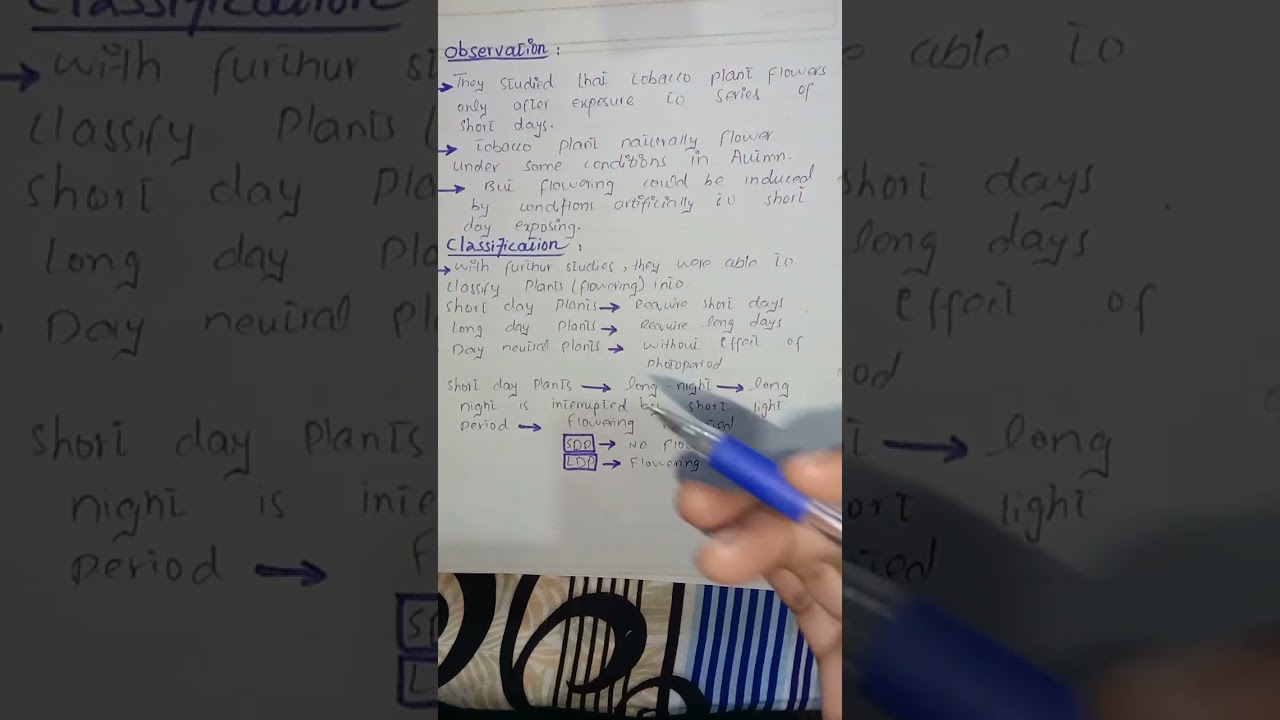 Observation :
→ They studied that tobacco plant flowers
only after exposure to series of
short days.
→ Tobacco plant naturally flower
under some conditions in Autmn.
→ But flowering could be induced
by condtions artificially to short
day exposing.
Classification :
→ with furthur studies, they were able to
classify Plants (flowering) into
Short day Plants → Require short days
Long day Plants → Require long days
Day neutral Plants → without effect of
photoperiod
Short day Plants → long night → long
night is interrupted by short light
period → Flowering
SDP → No
LDP → Flowering